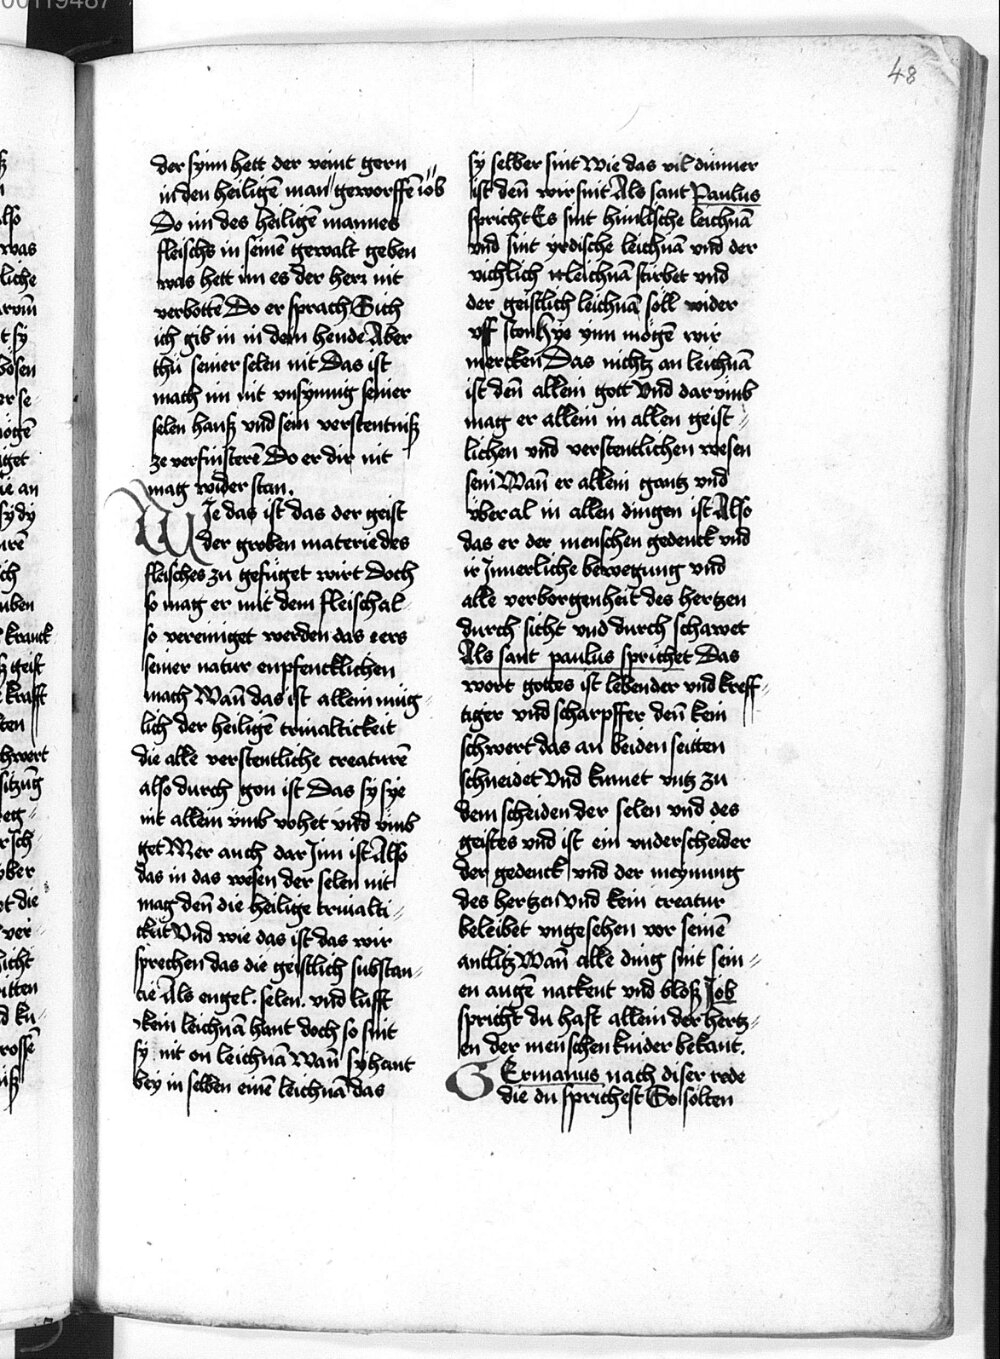 00119487
48
der synn hett der veint gern
in den heiligē man geworffē iob
Do im des heiligē mannes
fleischs in seinē gewalt geben
was hett im es der herr nit
verbottē Do er sprach Sich
ich gib in in dein hende Aber
thů seiner selen nit Das ist
mach im nit vnsynnig seiner
selen hauß vnd sein verstentniß
ze verfinsterē Do er dir nit
mag wider stan.
Wie das ist das der geist
der groben materie des
fleisches zu gefüget wirt Doch
so mag er mit dem fleisch al-
so vereiniget werden das eers
seiner natur enpfencklichen
mach Wañ das ist allein müg-
lich der heiligē triualtickeit
die alle verstentliche creaturē
also durch gon ist Das sy sye
nit allein vmb vohet vnd vmb
get Mer auch dar Jnn ist Also
das in das wesen der selen nit
mag deñ die heilige triualti-
ckeit Vnd wie das ist das wir
sprechen das die geistlich substan-
cie Als engel. selen. vnd lufft
kein leichnā hant doch so sint
sy nit on leichnā Wañ sy hant
bey in selben einē leichnā das
sy selber sint Wie das vil dünner
ist deñ wir sint Als sant Paulus
spricht Es sint himlische leichnā
vnd sint yrdische leichnā vnd der
vichlich leichnā stirbet vnd
der geistlich leichnā soll wider
vff ston Hye ynn mögē wir
mercken Das nichtz an leichnā
ist deñ allein gott Vnd darvmb
mag er allein in allen geist-
lichen vnd verstentlichen wesen
sein Wañ er allein gantz vnd
vber al in allen dingen ist Also
das er der menschen gedenck vnd
ir Jnnerliche bewegung vnd
alle verborgenheit des hertzen
durch sicht vnd durch schawet
Als sant paulus sprichet Das
wort gottes ist lebender vnd kreff-
tiger vnd scharpffer deñ kein
schwert das an beiden seitten
schneidet Vnd kumet vntz zu
dem scheiden der selen vnd des
geistes vnd ist ein vnderscheider
der gedenck vnd der meynung
des hertzen Vnd kein creatur
beleibet vngesehen vor seinē
antlitz Wañ alle ding sint sein-
en augē nackent vnd bloß Job
spricht du hast allein der hertz-
en der menschen kinder bekant.
GErmanus nach diser rede
die du sprichest So solten